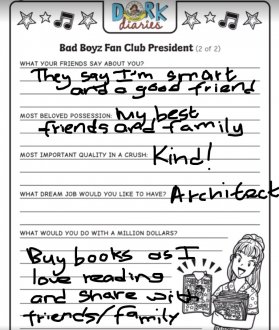 DORK
diaries
Bad Boyz Fan Club President (2 of 2)
WHAT YOUR FRIENDS SAY ABOUT YOU?
They say I'm smart
and a good friend
MOST BELOVED POSSESSION: My best
friends and family
MOST IMPORTANT QUALITY IN A CRUSH: Kind!
WHAT DREAM JOB WOULD YOU LIKE TO HAVE? Architect
WHAT WOULD YOU DO WITH A MILLION DOLLARS?
Buy books as I
love reading
and share with
friends/family